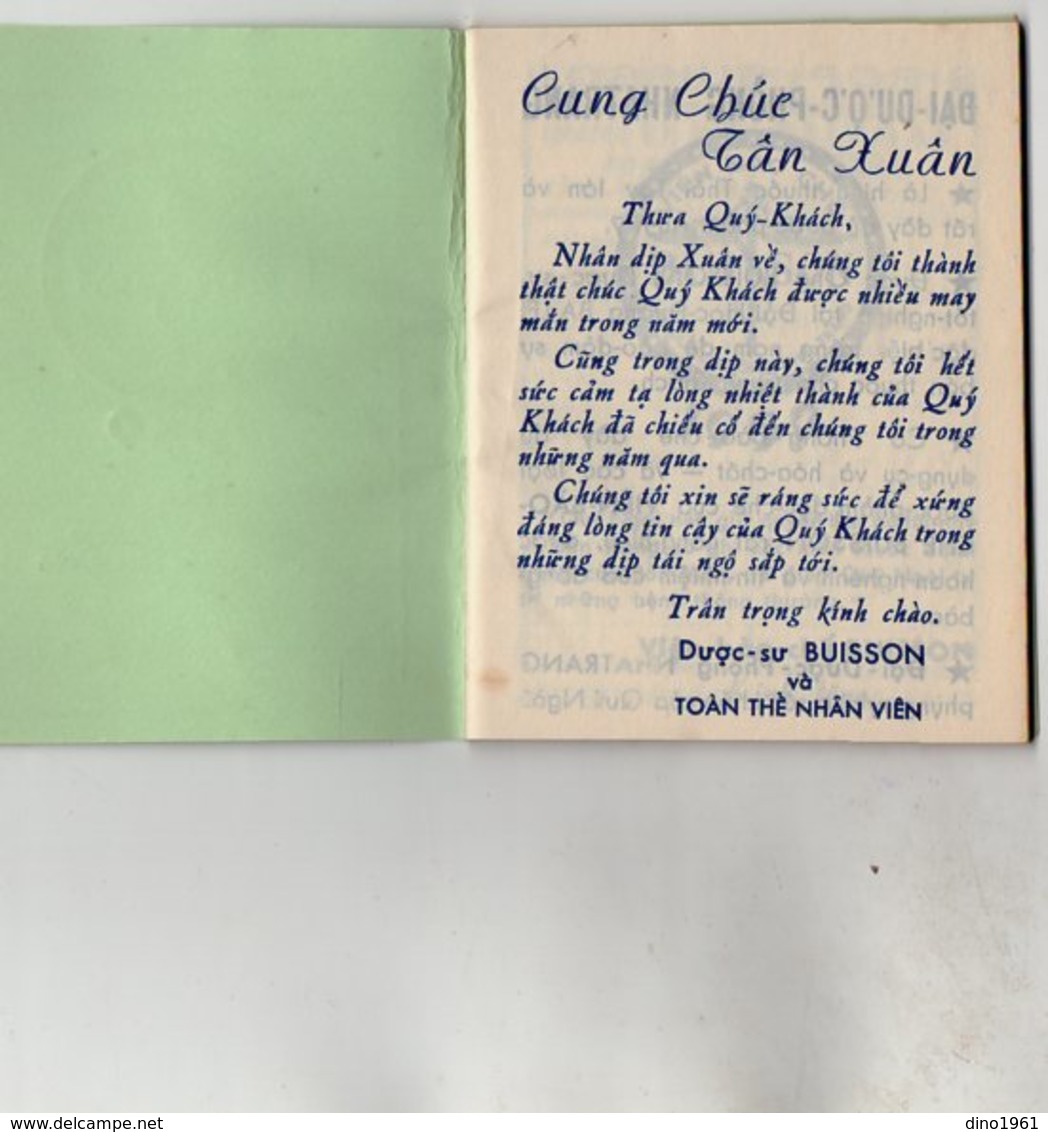 Cung Chúc
Tân Xuân
Thưa Quý-Khách,
Nhân dịp Xuân về, chúng tôi thành
thật chúc Quý Khách được nhiều may
mắn trong năm mới.
Cũng trong dịp này, chúng tôi hết
sức cảm tạ lòng nhiệt thành của Quý
Khách đã chiếu cố đến chúng tôi trong
những năm qua.
Chúng tôi xin sẽ ráng sức để xứng
đáng lòng tin cậy của Quý Khách trong
những dịp tái ngộ sắp tới.
Trân trọng kính chào.
Dược-sư BUISSON
và
TOÀN THỂ NHÂN VIÊN
www.delcampe.net
dino1961